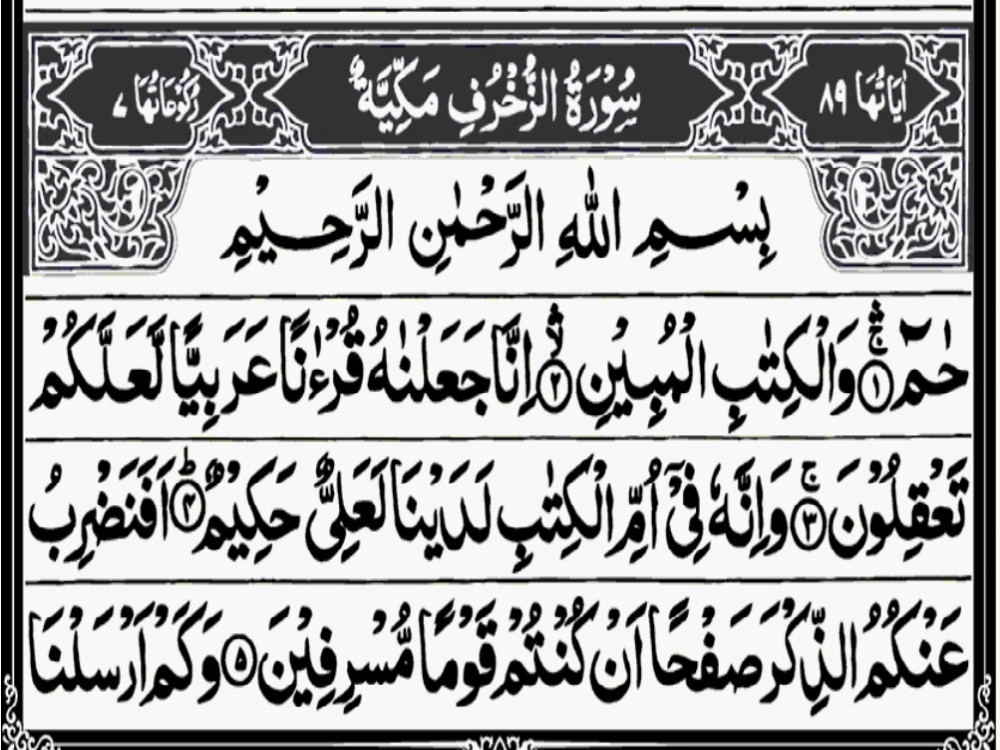 اٰيَاتُهَا ٨٩ سُوْرَةُ الزُّخْرُفِ مَكِّيَّةٌ رُكُوْعَاتُهَا ٧
بِسْمِ اللّٰهِ الرَّحْمٰنِ الرَّحِيْمِ
حٰمٓ ۚۛ ﴿١﴾ وَالْكِتٰبِ الْمُبِيْنِ ۙۛ ﴿٢﴾ اِنَّا جَعَلْنٰهُ قُرْءٰنًا عَرَبِيًّا لَّعَلَّكُمْ
تَعْقِلُوْنَ ۚ ﴿٣﴾ وَاِنَّهٗ فِيْٓ اُمِّ الْكِتٰبِ لَدَيْنَا لَعَلِيٌّ حَكِيْمٌ ؕ ﴿۴﴾ اَفَنَضْرِبُ
عَنْكُمُ الذِّكْرَ صَفْحًا اَنْ كُنْتُمْ قَوْمًا مُّسْرِفِيْنَ ﴿۵﴾ وَكَمْ اَرْسَلْنَا